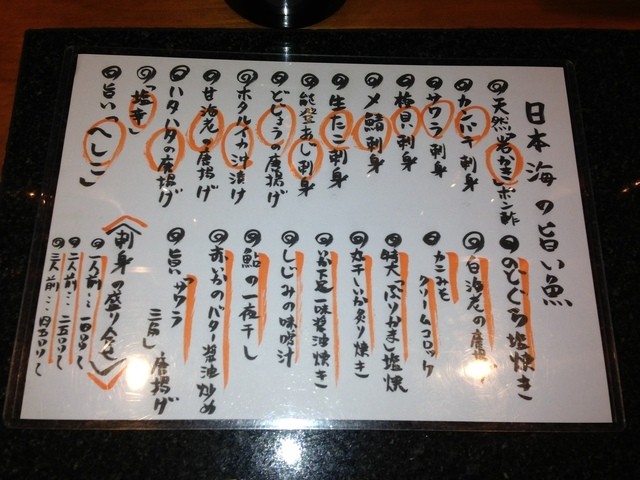 日本海の旨い魚
◎天然岩がきポン酢
◎カンパチ刺身
◎サワラ刺身
◎梅貝刺身
◎〆鯖刺身
◎生たこ刺身
◎能登あじ刺身
◎どじょうの唐揚げ
◎ホタルイカ沖漬け
◎甘海老の唐揚げ
◎ハタハタの唐揚げ
◎「塩辛」
◎旨い「へしこ」
◎のどぐろ塩焼き
◎白海老の唐揚げ
◎カニみそクリームコロッケ
◎特大「ぶりかま」塩焼
◎丸干しいか炙り焼き
◎いか下足一味醤油焼き
◎しじみの味噌汁
◎鮎の一夜干し
◎赤いかのバター醤油炒め
◎旨いザワラ 唐揚げ
〈刺身の盛り合せ〉
◎一人前…一四品りく
◎二人前…二五品りく
◎三人前…四品りく